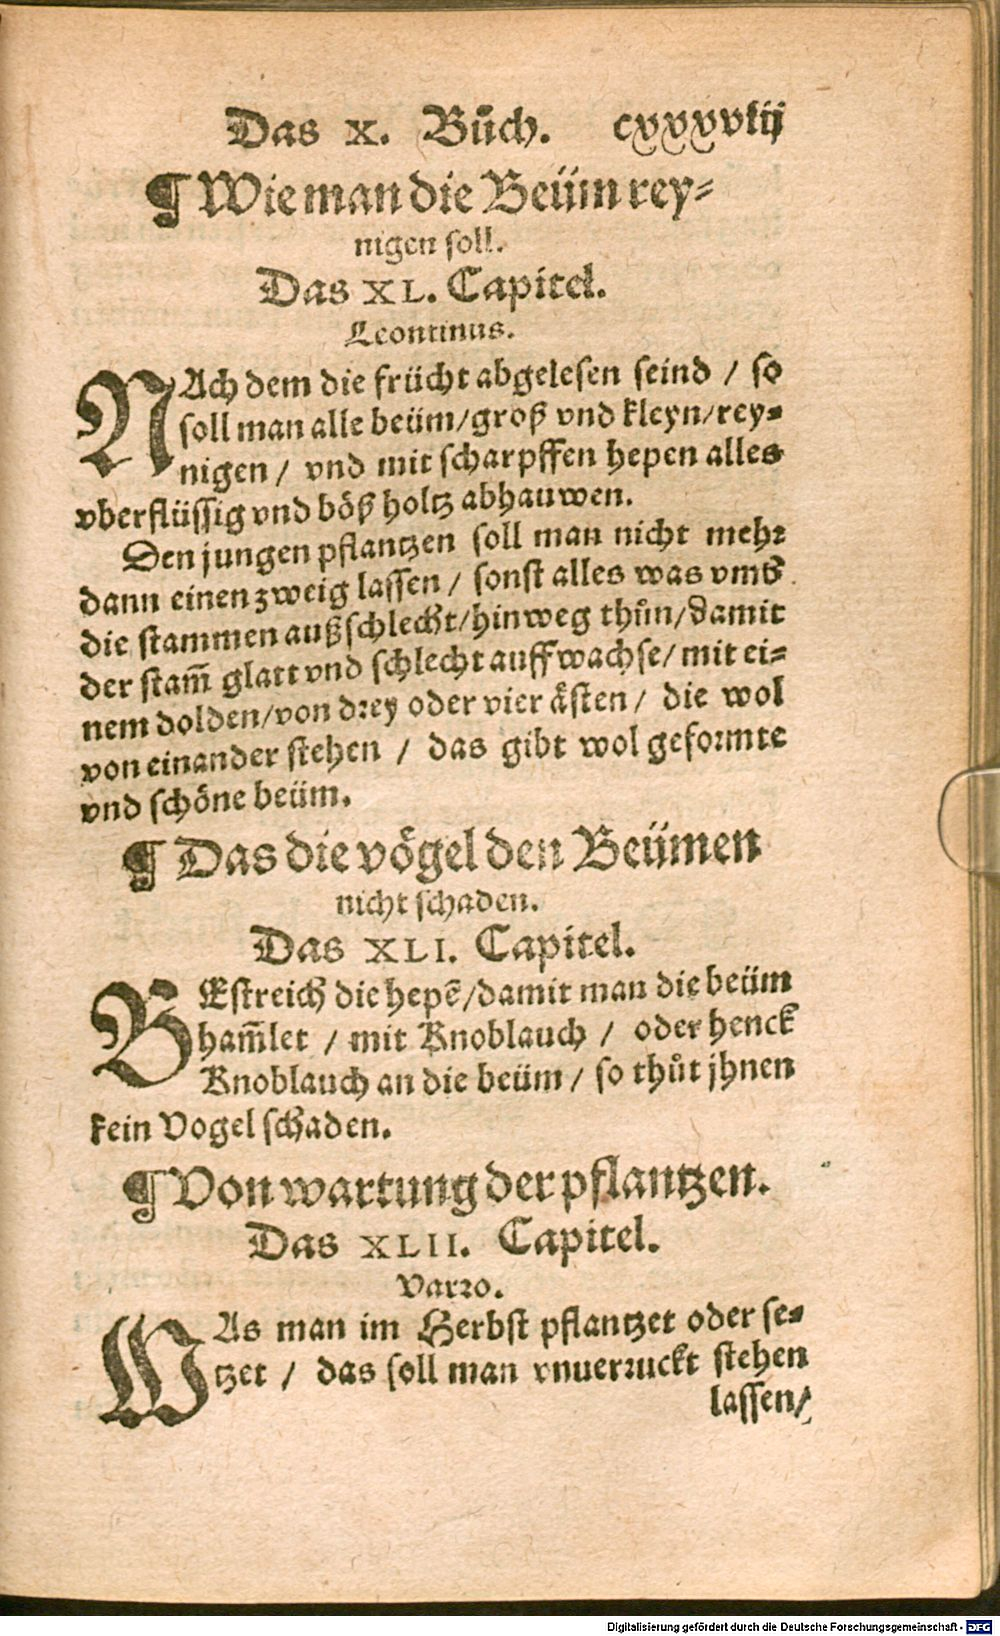 Das X. Bůch. cxxxvkij
¶ Wie man die Beüm rey⸗
nigen soll.
Das XL. Capitel.
Leontinus.
NAch dem die frücht abgelesen seind / so
soll man alle beüm/groß vnd kleyn/rey⸗
nigen / vnd mit scharpffen hepen alles
vberflüssig vnd böß holtz abhauwen.
Den jungen pflantzen soll man nicht mehr
dann einen zweig lassen / sonst alles was vmb
die stammen außschlecht/hinweg thůn/damit
der stam̄ glatt vnd schlecht auffwachse/mit ei⸗
nem dolden/von drey oder vier ästen / die wol
von einander stehen / das gibt wol geformte
vnd schöne beüm.
¶ Das die vögel den Beümen
nicht schaden.
Das XLI. Capitel.
BEstreich die hepē/damit man die beüm
ham̄let / mit Knoblauch / oder henck
Knoblauch an die beüm / so thůt jhnen
kein Vogel schaden.
¶ Von wartung der pflantzen.
Das XLII. Capitel.
Varro.
WAs man im Herbst pflantzet oder se⸗
tzet / das soll man vnuerruckt stehen
lassen/
Digitalisierung gefördert durch die Deutsche Forschungsgemeinschaft - DFG